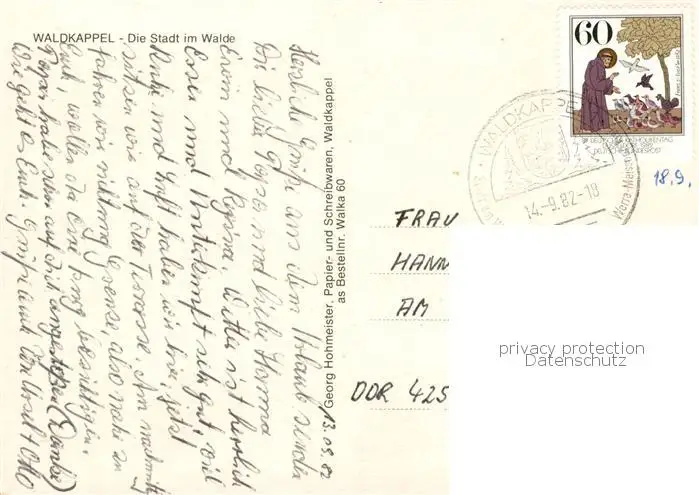 WALDKAPPEL - Die Stadt im Walde
13.09.82
Herzliche Grüße aus dem Urlaub senden
Dir liebe und liebe Hanna
Erwin und Regina. Wetter ist herrlich
Essen und Unterkunft sehr gut, viel
Ruhe und Luft haben wir hier, jetzt
sitzen wir auf der Terrasse. Am
fahren wir Grenze, also nahe zu
Euch, wollen da eine Burg besichtigen.
haben auf Dich angestoßen (Danke)
Wie geht es Euch. Grüße auch von Ursel + Otto
Georg Hohmeister, Papier- und Schreibwaren, Waldkappel
as Bestellnr. Walka 60
60
DEUTSCHE BUNDESPOST
WALDKAPPEL
14.-9.82-18
Werra-Meis
18.9.
FRAU
HANN
AM
DDR 425
privacy protection
Datenschutz